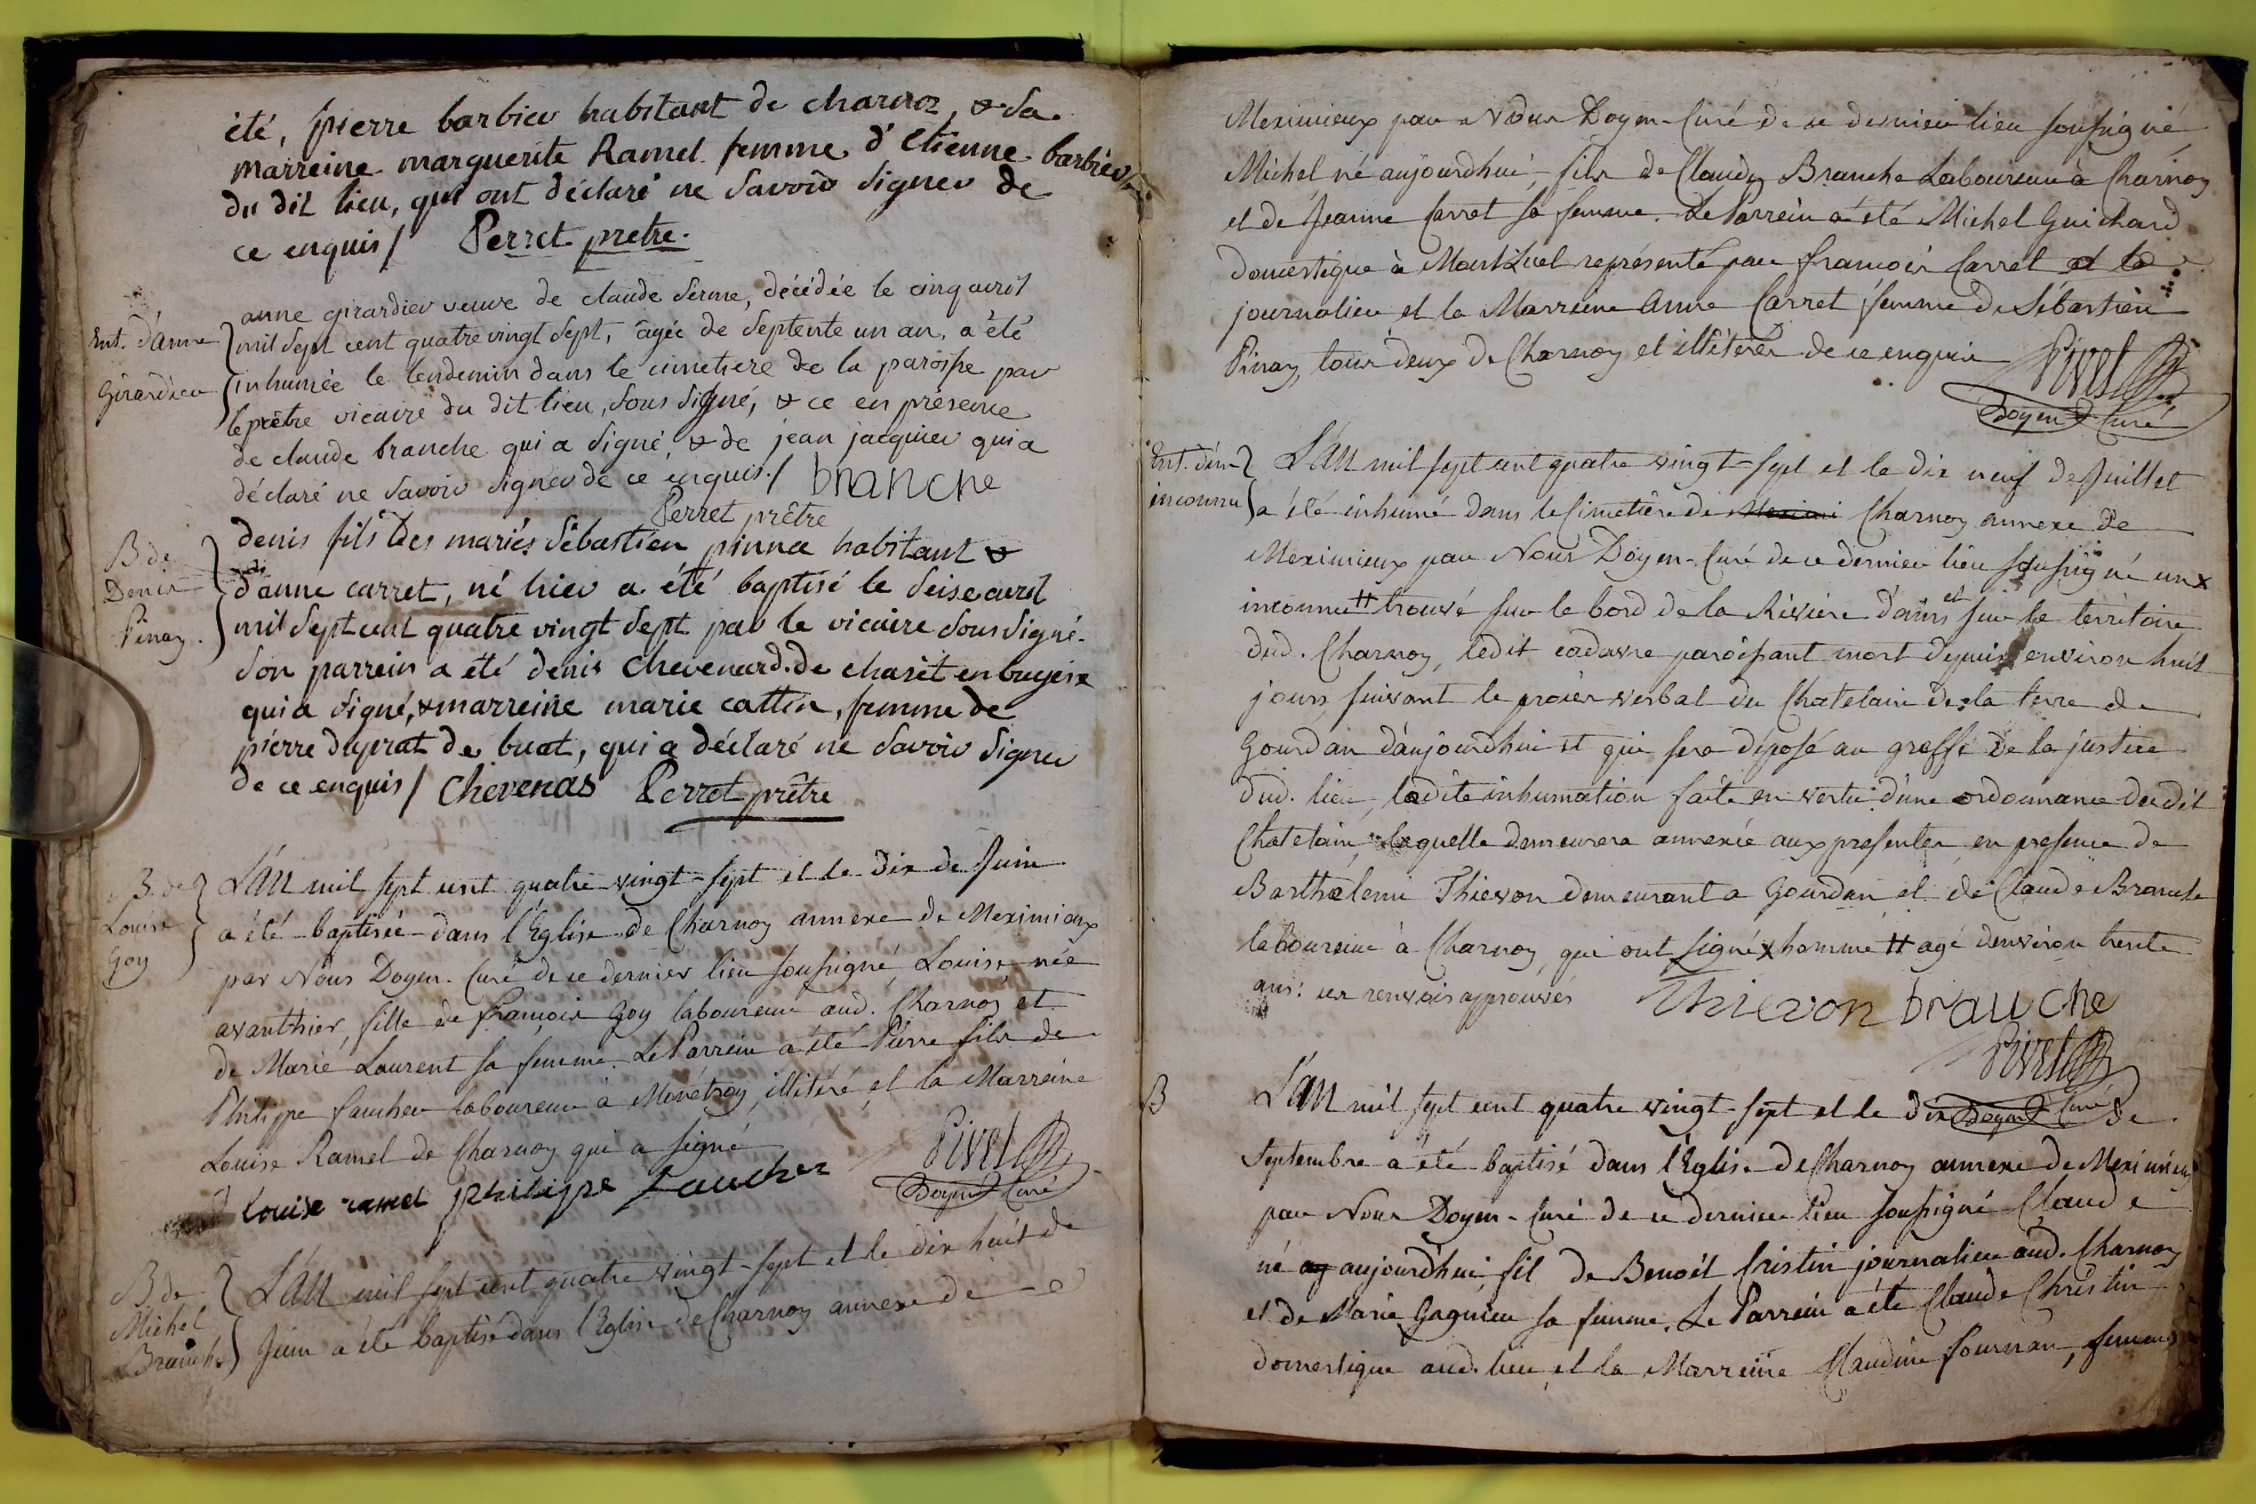 été, pierre barbier habitant de charnoz, & sa
marreine marguerite Ramel femme d'Etienne barbier
du dit lieu, qui ont déclaré ne savoir signer de
ce enquis / Perret pretre.
Ent. d'anne
Girardier
anne girardier veuve de claude serme, décédée le cinq avril
mil sept cent quatre vingt sept, âgée de septente un an, a été
inhumée le lendemin dans le cimetiere de la paroisse par
le prêtre vicaire du dit lieu, sous signé, & ce en présence
de claude branche qui a signé, & de jean jacquier qui a
déclaré ne savoir signer de ce enquis. / branche
Perret prêtre
B de
Denis
Pinay.
denis fils des mariés sébastien pinna habitant &
d'anne carret, né hier a été baptisé le seise avril
mil sept cent quatre vingt sept par le vicaire sous signé.
son parrein a été denis chevenard de chaset en bugeix
qui a signé, & marreine marie cattin, femme de
pierre duprat de buat, qui a déclaré ne savoir signer
de ce enquis / Chevenas Perret prêtre
B. de
Louise
Goy
L'an mil sept cent quatre vingt-sept et le dix de Juin
a été baptisée dans l'Eglise de Charnoy annexe de Meximieux
par Nous Doyen-Curé de ce dernier lieu soussigné Louise née
avanthier, fille de françois Goy laboureur aud. Charnoy et
de Marie Laurent sa femme. Le Parrein a été Pierre fils de
Philippe faucher laboureur à Monétroy, illitéré, et la Marreine
Louise Ramel de Charnoy qui a signé
Louise ramel philippe faucher
Pivet
Doyen Curé
B. de
Michel
Branche
L'an mil sept cent quatre vingt-sept et le dix huit de
Juin a été baptisé dans l'Eglise de Charnoy annexe de
Meximieux par Nous Doyen-Curé de ce dernier lieu soussigné
Michel né aujourdhui, fils de Claude Branche Laboureur à Charnoy
et de Jeanne Carret sa femme. Le Parrein a été Michel Guichard
domestique à Montluel représenté par françois Carret et la
journalier et la Marreine Anne Carret femme de Sébastien
Pinay, tous deux de Charnoy et illitérés de ce enquis
Pivet
Doyen Curé
Ent. d'un
inconnu
L'an mil sept cent quatre vingt-sept et le dix neuf de Juillet
a été inhumé dans le Cimetière de Meximi Charnoy annexe de
Meximieux par Nous Doyen-Curé de ce dernier lieu soussigné un x
inconnu # trouvé sur le bord de la Rivière d'ains et sur le territoire
dud. Charnoy, ledit cadavre paroissant mort depuis environ huit
jours suivant le procès verbal du Chatelain de la terre de
Gourdan d'aujourdhui et qui sera déposé au greffe de la justice
dud. lieu, ladite inhumation faite en vertu d'une ordonnance dudit
Chatelain, laquelle demeurera annexée aux presentes, en presence de
Barthelemi Thievon demeurant a Gourdan et de Claude Branche
laboureur à Charnoy, qui ont signé x homme # agé denviron trente
ans: ces renvois approuvés Thievon branche
Pivet
Doyen Curé
B
L'an mil sept cent quatre vingt-sept et le dix de
Septembre a été baptisé dans l'Eglise de Charnoy annexe de Meximieux
par Nous Doyen-Curé de ce dernier lieu soussigné Claude
né aujourd'hui fil de Benoit Cristin journalier aud. Charnoy
et de Marie Gagnieu sa femme. Le Parrein a été Claude Christin
domestique aud. lieu, et la Marreine Claudine fournan, femme